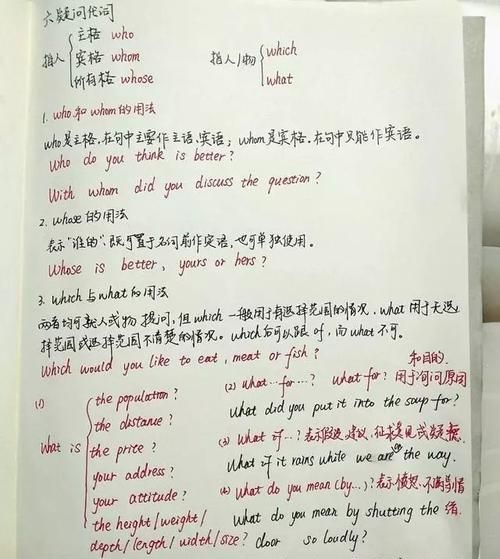 六疑问代词
指人 主格 who
宾格 whom
所有格 whose
指人/物 which
what
1. who 和 whom 的用法
who是主格,在句中主要作主语,宾语; whom是宾格,在句中只能作宾语。
Who do you think is better?
With whom did you discuss the question?
2. whose 的用法
表示"谁的" 既可置于名词前作宾语,也可单独使用。
Whose is better, yours or hers?
3. which 与 what 的用法
两者均可就人或物提问,但 which 一般用于有选择范围的情况, what 用于无选
择范围或选择范围不清楚的情况。which后可以跟 of, 而 what 不可。
Which would you like to eat, meat or fish?
(1) What is
the population?
the distance?
the price?
your address?
your attitude?
the height/weight/
depth/length/width/size?
(2) what...for...? what for? 用于询问原因
和目的.
What did you put it into the soup for?
(3) What if...? 表示假设,建议,征求意见或
What if it rains while we are on the way.
(4) What do you mean (by...)? 表示愤怒、不满等情
绪.
What do you mean by shutting the
door so loudly?